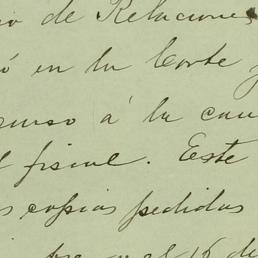 io de Relaciones
ó en la Corte y
curso á la cau
l fiscal. Este
s copias pedidas
el 15 de